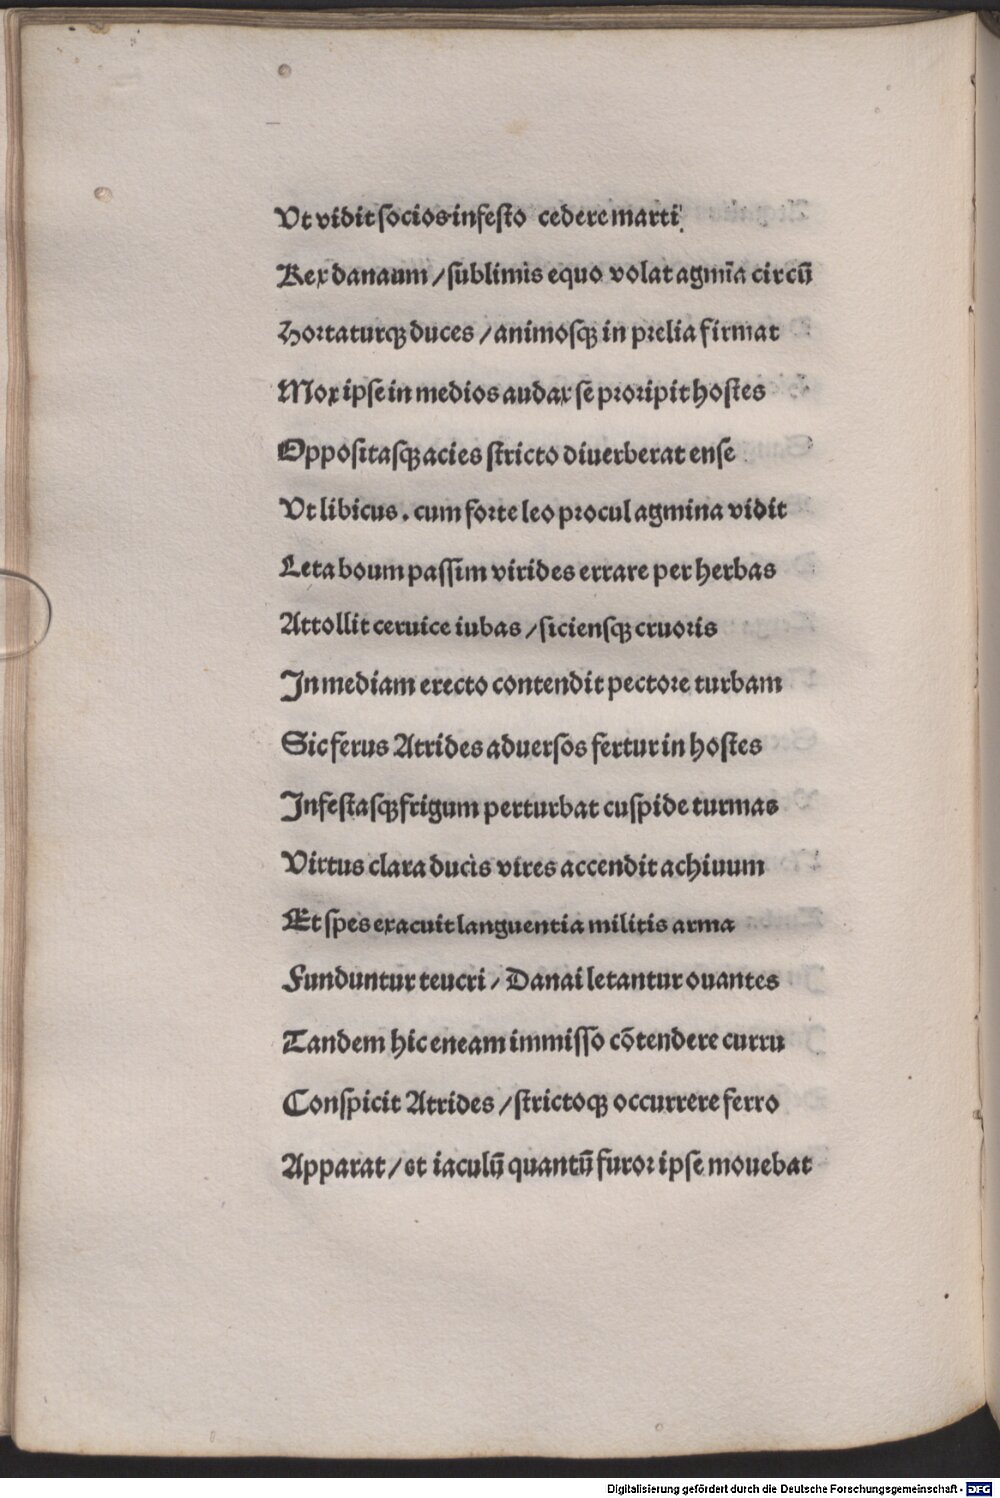 Vt vidit socios infesto cedere marti
Rex danaum / sublimis equo volat agmīa circū
Hortaturqꝫ duces / animosqꝫ in prelia firmat
Mox ipse in medios audax se proripit hostes
Oppositasqꝫ acies stricto diuerberat ense
Vt libicus . cum forte leo procul agmina vidit
Leta boum passim virides errare per herbas
Attollit ceruice iubas / siciensqꝫ cruoris
In mediam erecto contendit pectore turbam
Sic ferus Atrides aduersos fertur in hostes
Infestasqꝫ frigum perturbat cuspide turmas
Virtus clara ducis vires accendit achiuum
Et spes exacuit languentia militis arma
Funduntur teucri / Danai letantur ouantes
Tandem hic eneam immisso cōtendere curru
Conspicit Atrides / strictoqꝫ occurrere ferro
Apparat / et iaculū quantū furor ipse mouebat
Digitalisierung gefördert durch die Deutsche Forschungsgemeinschaft - DFG